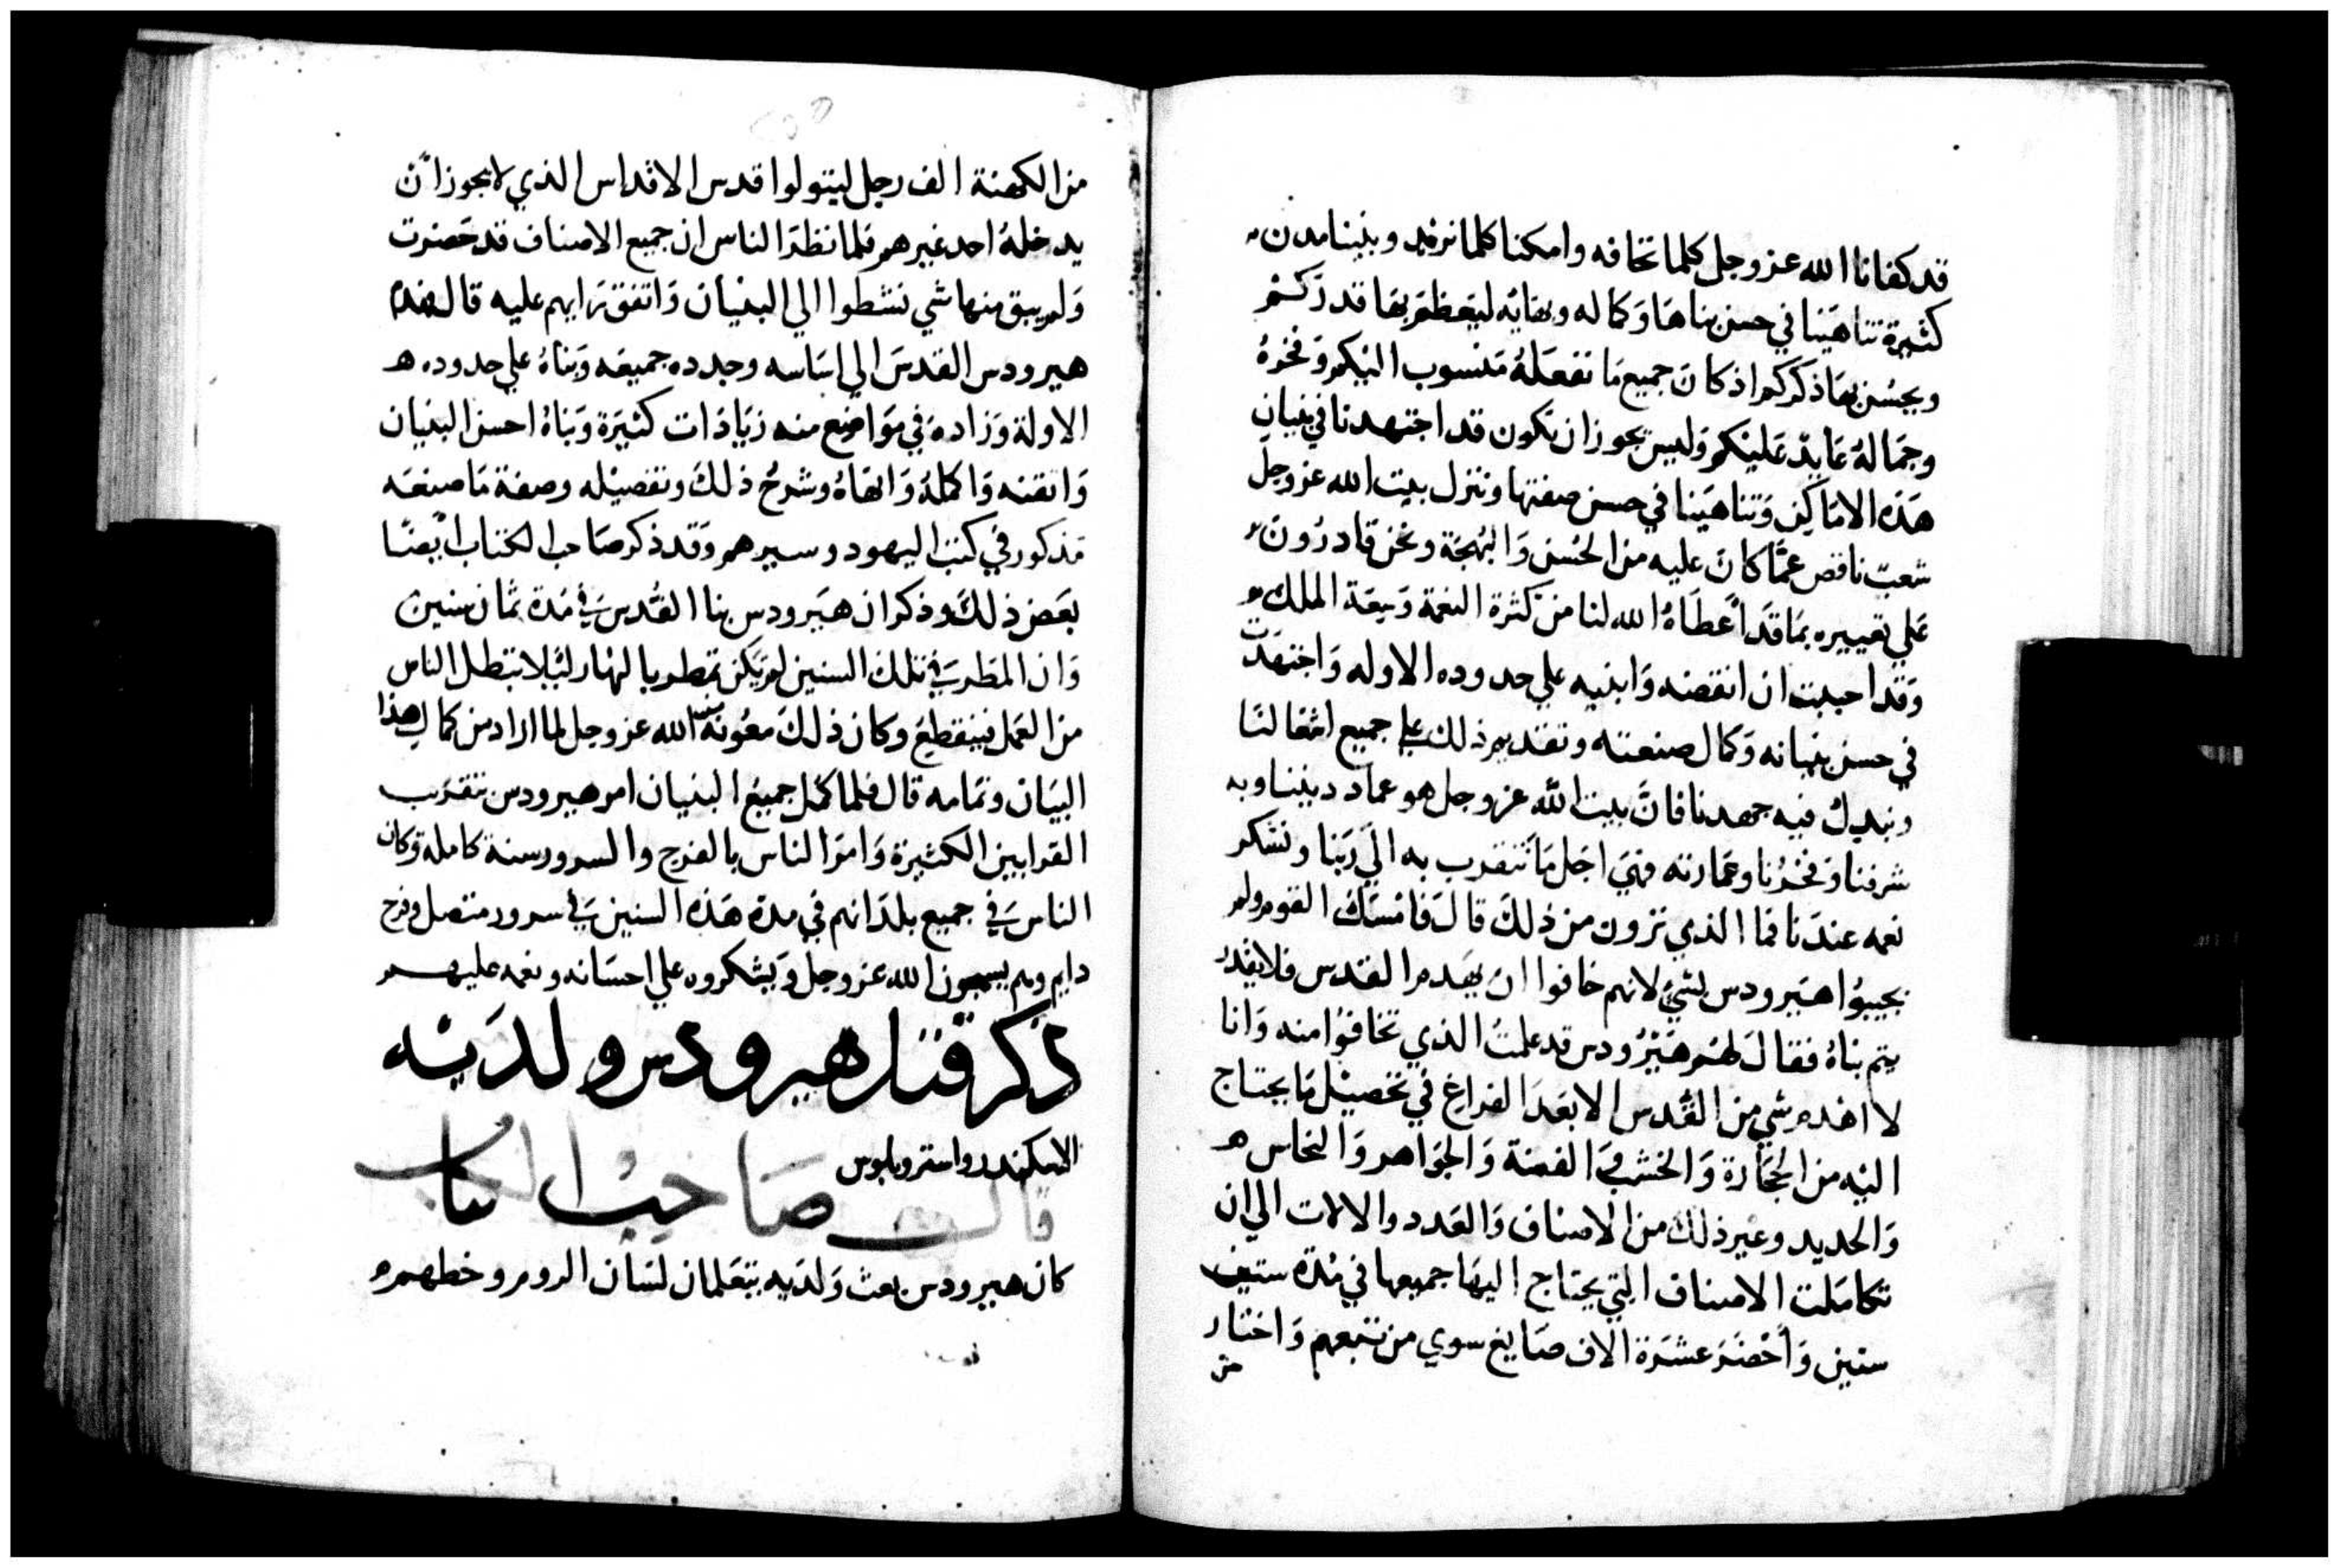 قد كفانا الله عز وجل كلما نخافه وامكنا كلما نريد وبنينا مدن
كثيرة تناهينا في حسن بناها وكماله وبقايه ليعظم بها قد ركم
ويحسن بها ذكركم اذ كان جميع ما نفعله منسوب اليكم وفخره
وجماله عايد عليكم وليس يجوز ان نكون قد اجتهدنا في بنيان
هذه الاماكن وتناهينا في حسن صفتها ونترك بيت الله عز وجل
شعب ناقص عما كان عليه من الحسن والبهجة ونحن قادرون
علي تغييره بما قد اعطاه الله لنا من كثرة النعمة وسعة الملك
وقد احببت ان انقضه وابنيه علي حدوده الاوله واجتهدت
في حسن بنيانه وكمال صنعته ونقدم ذلك علي جميع اشغالنا
ونبدل فيه جهدنا فان بيت الله عز وجل هو عماد ديننا وبه
شرفنا وفخرنا وعمارته فهي اجل ما نتقرب به الي ربنا ونشكر
نعمه عندنا فما الذي ترون من ذلك قال فامسك القوم ولم
يجيبوا هيرودس بشي لانهم خافوا ان يهدم القدس فلا يقدر
يتم بناه فقال لهم هيرودس قد علمت الذي تخافوا منه وانا
لا اهدم شي من القدس الا بعد الفراغ في تحصيل ما يحتاج
اليه من الحجارة والخشب والفضة والجواهر والنحاس ه
والحديد وغير ذلك من الاصناف والعدد والالات الي ان
تكاملت الاصناف التي يحتاج اليها جميعها في مدة ستة
سنين واحضر عشرة الاف صايغ سوي من تبعهم واختار
من
من الكهنة الف رجل ليتولوا قدس الاقداس الذي لا يجوز ان
يدخله احد غيرهم فلما نظر الناس ان جميع الاصناف قد حضرت
ولم يبق منها شي نشطوا الي البنيان واتفق رايهم عليه قال فهدم
هيرودس القدس الي اساسه وجدده جميعه وبناه علي حدوده ه
الاولة وزاده في مواضع منه زيادات كثيرة وبناه احسن البنيان
واتقنه واكمله وانهاه وشرح ذلك وتفصيله وصفة ما صنعه
مذكور في كتب اليهود وسيرهم وقد ذكر صاحب الكتاب ايضا
بعض ذلك وذكر ان هيرودس بنا القدس في مدة ثمان سنين
وان المطر في تلك السنين لم يكن تمطر بالنهار ليلا تبطل الناس
من العمل فينقطع وكان ذلك معونة من الله عز وجل لما اراد من كمال هذا
البيان وتمامه قال فلما كمل جميع البنيان امر هيرودس بتقريب
القرابين الكثيرة وامر الناس بالفرح والسرور سنة كامله وكان
الناس في جميع بلدانهم في مدة هذه السنين في سرور متصل وفرح
دايم وهم يسبحون الله عز وجل ويشكروه علي احسانه ونعمه عليهم
ذكر قتل هيرودس ولديه
الاسكندر واسترو بلوس
قال صاحب الكتاب
كان هيرودس بعث ولديه يتعلمان لسان الروم وخطهم